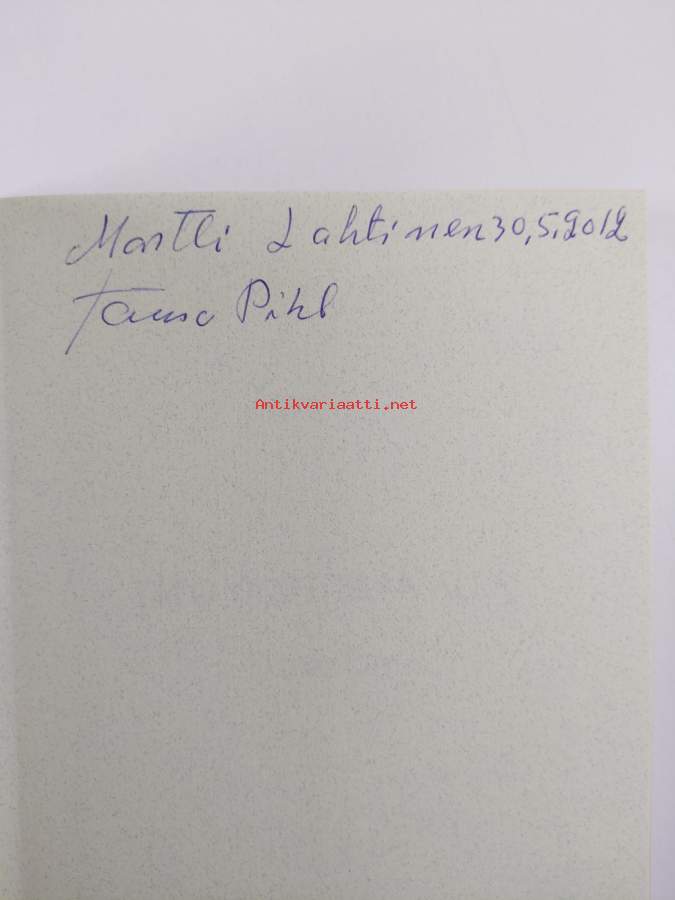 Martti Lahtinen 30.5.2012
Pihl
Antikvariaatti.net